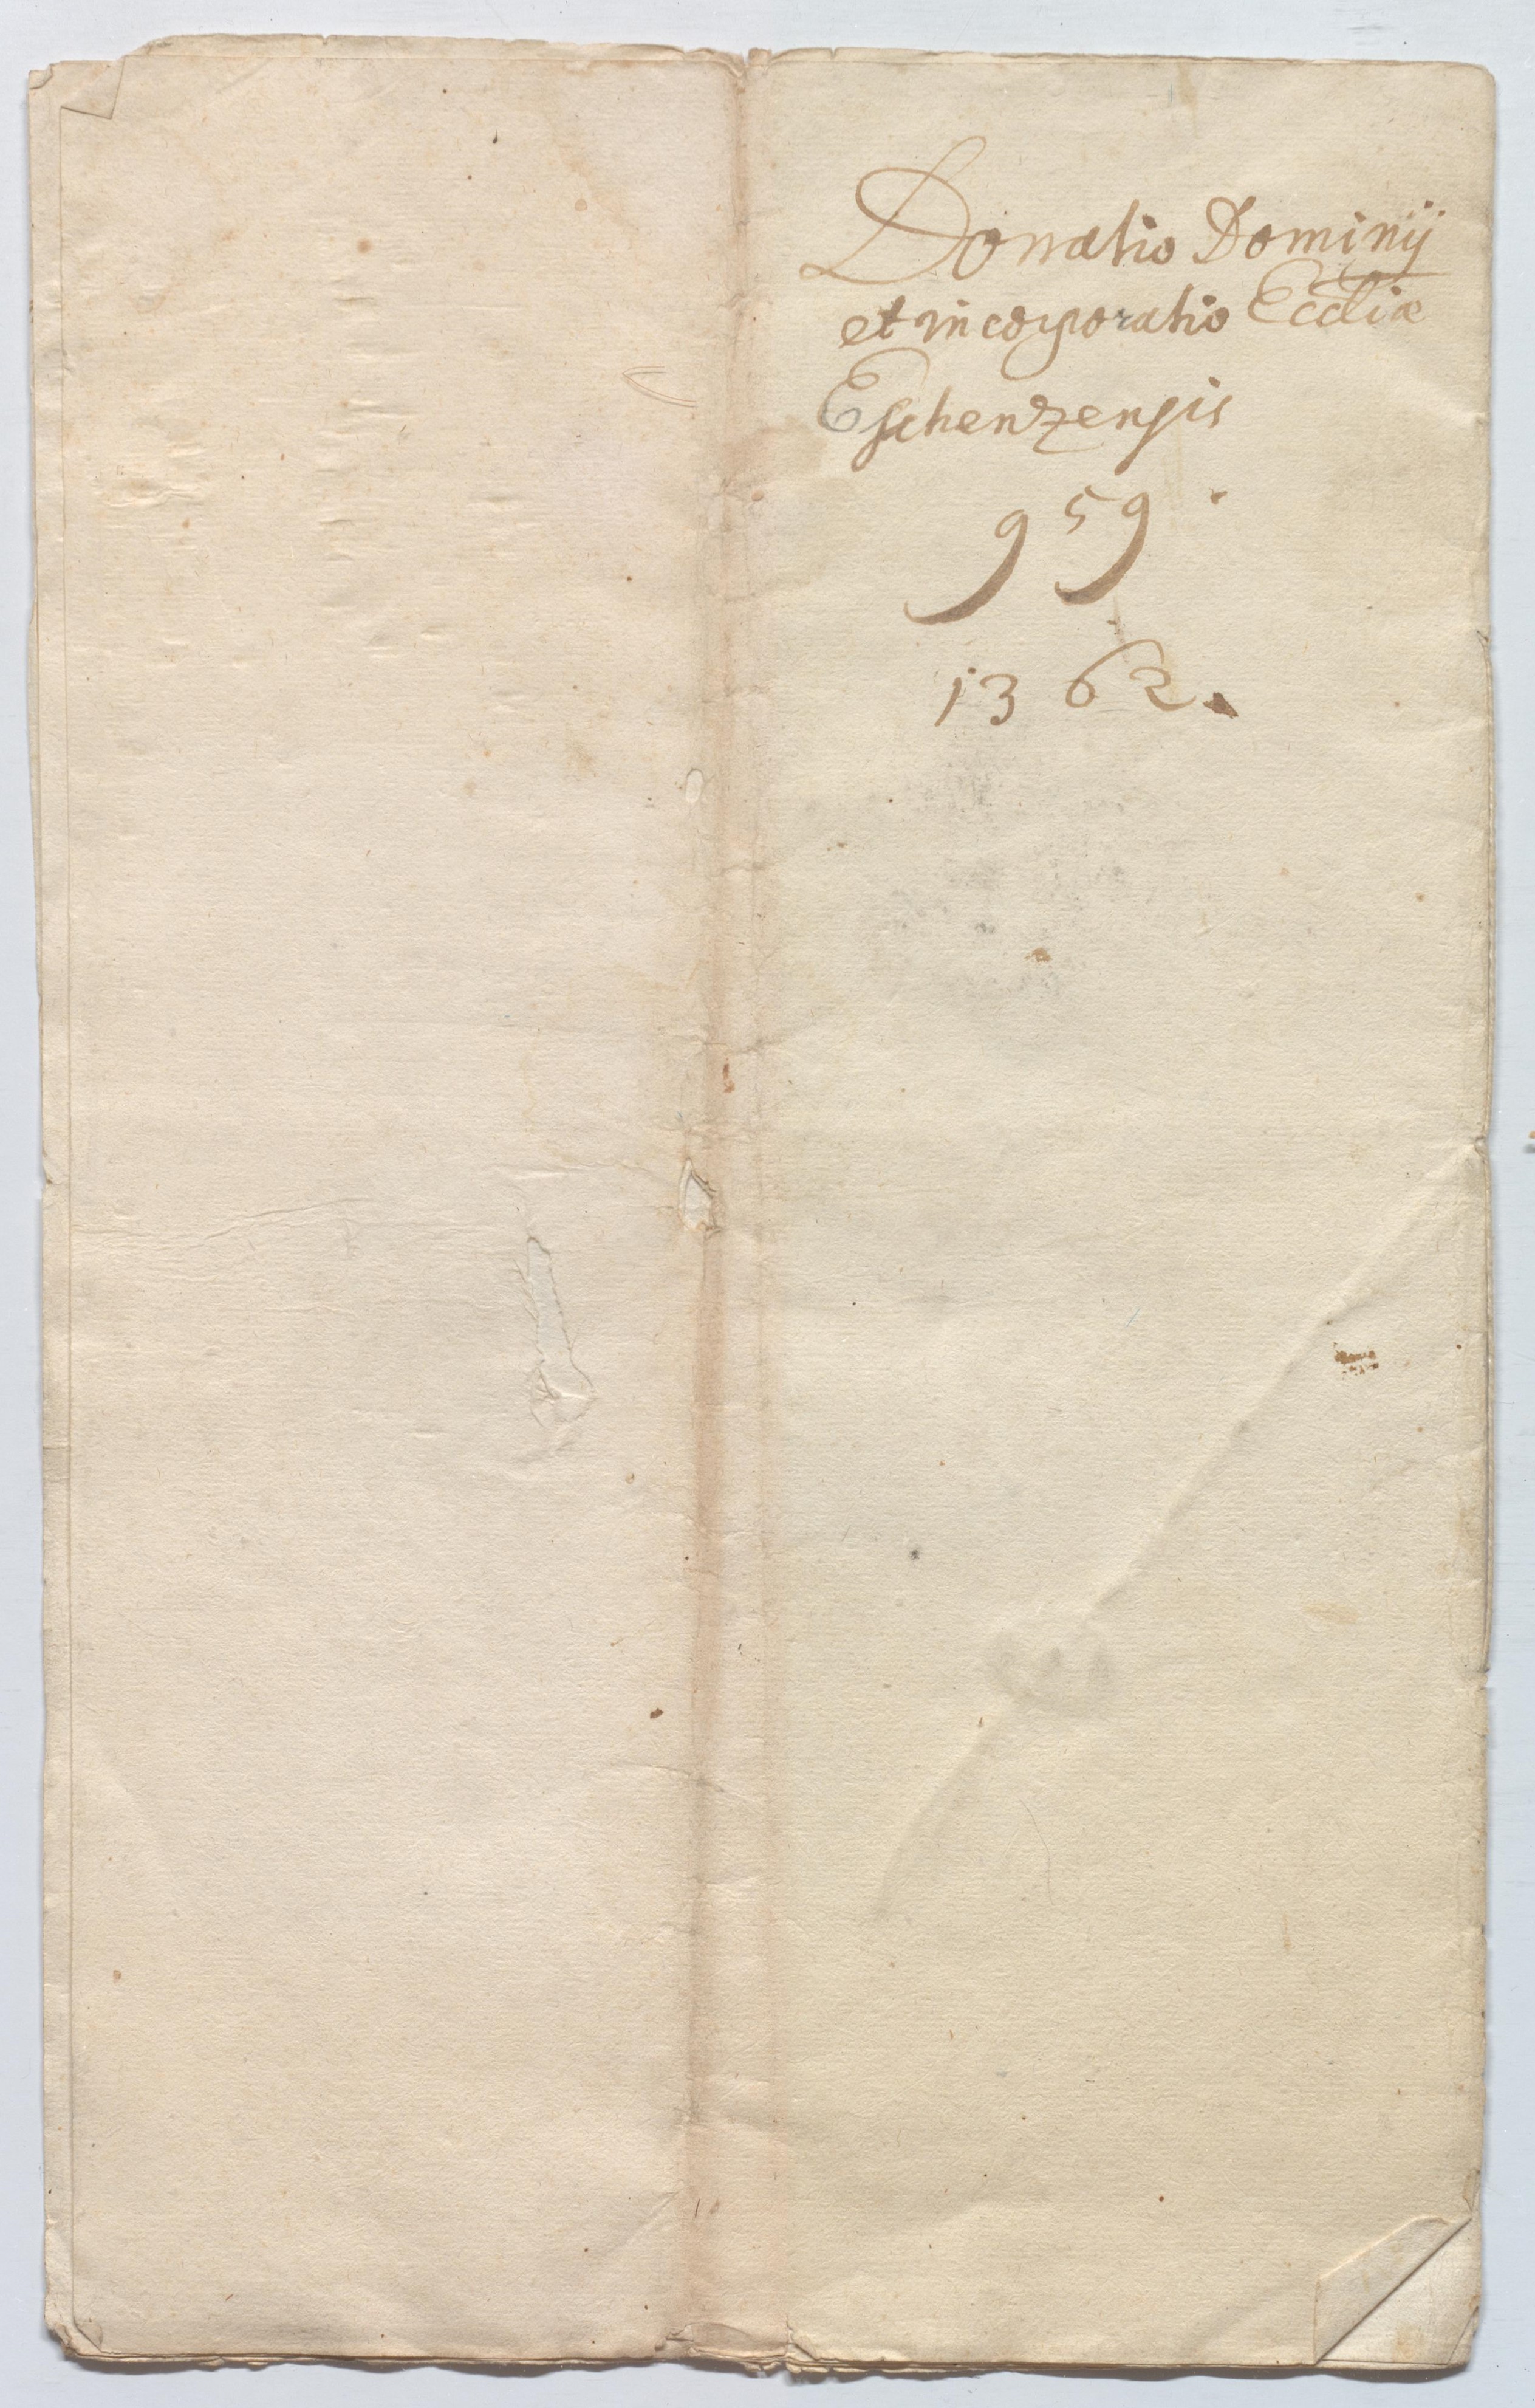 Donatio Dominÿ
et incorporatio Eccliæ
Eschenzensis
959.
1362.